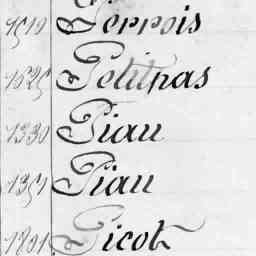 1519 Perrois
1625 Petitpas
1330 Piau
1351 Piau
1801 Picot